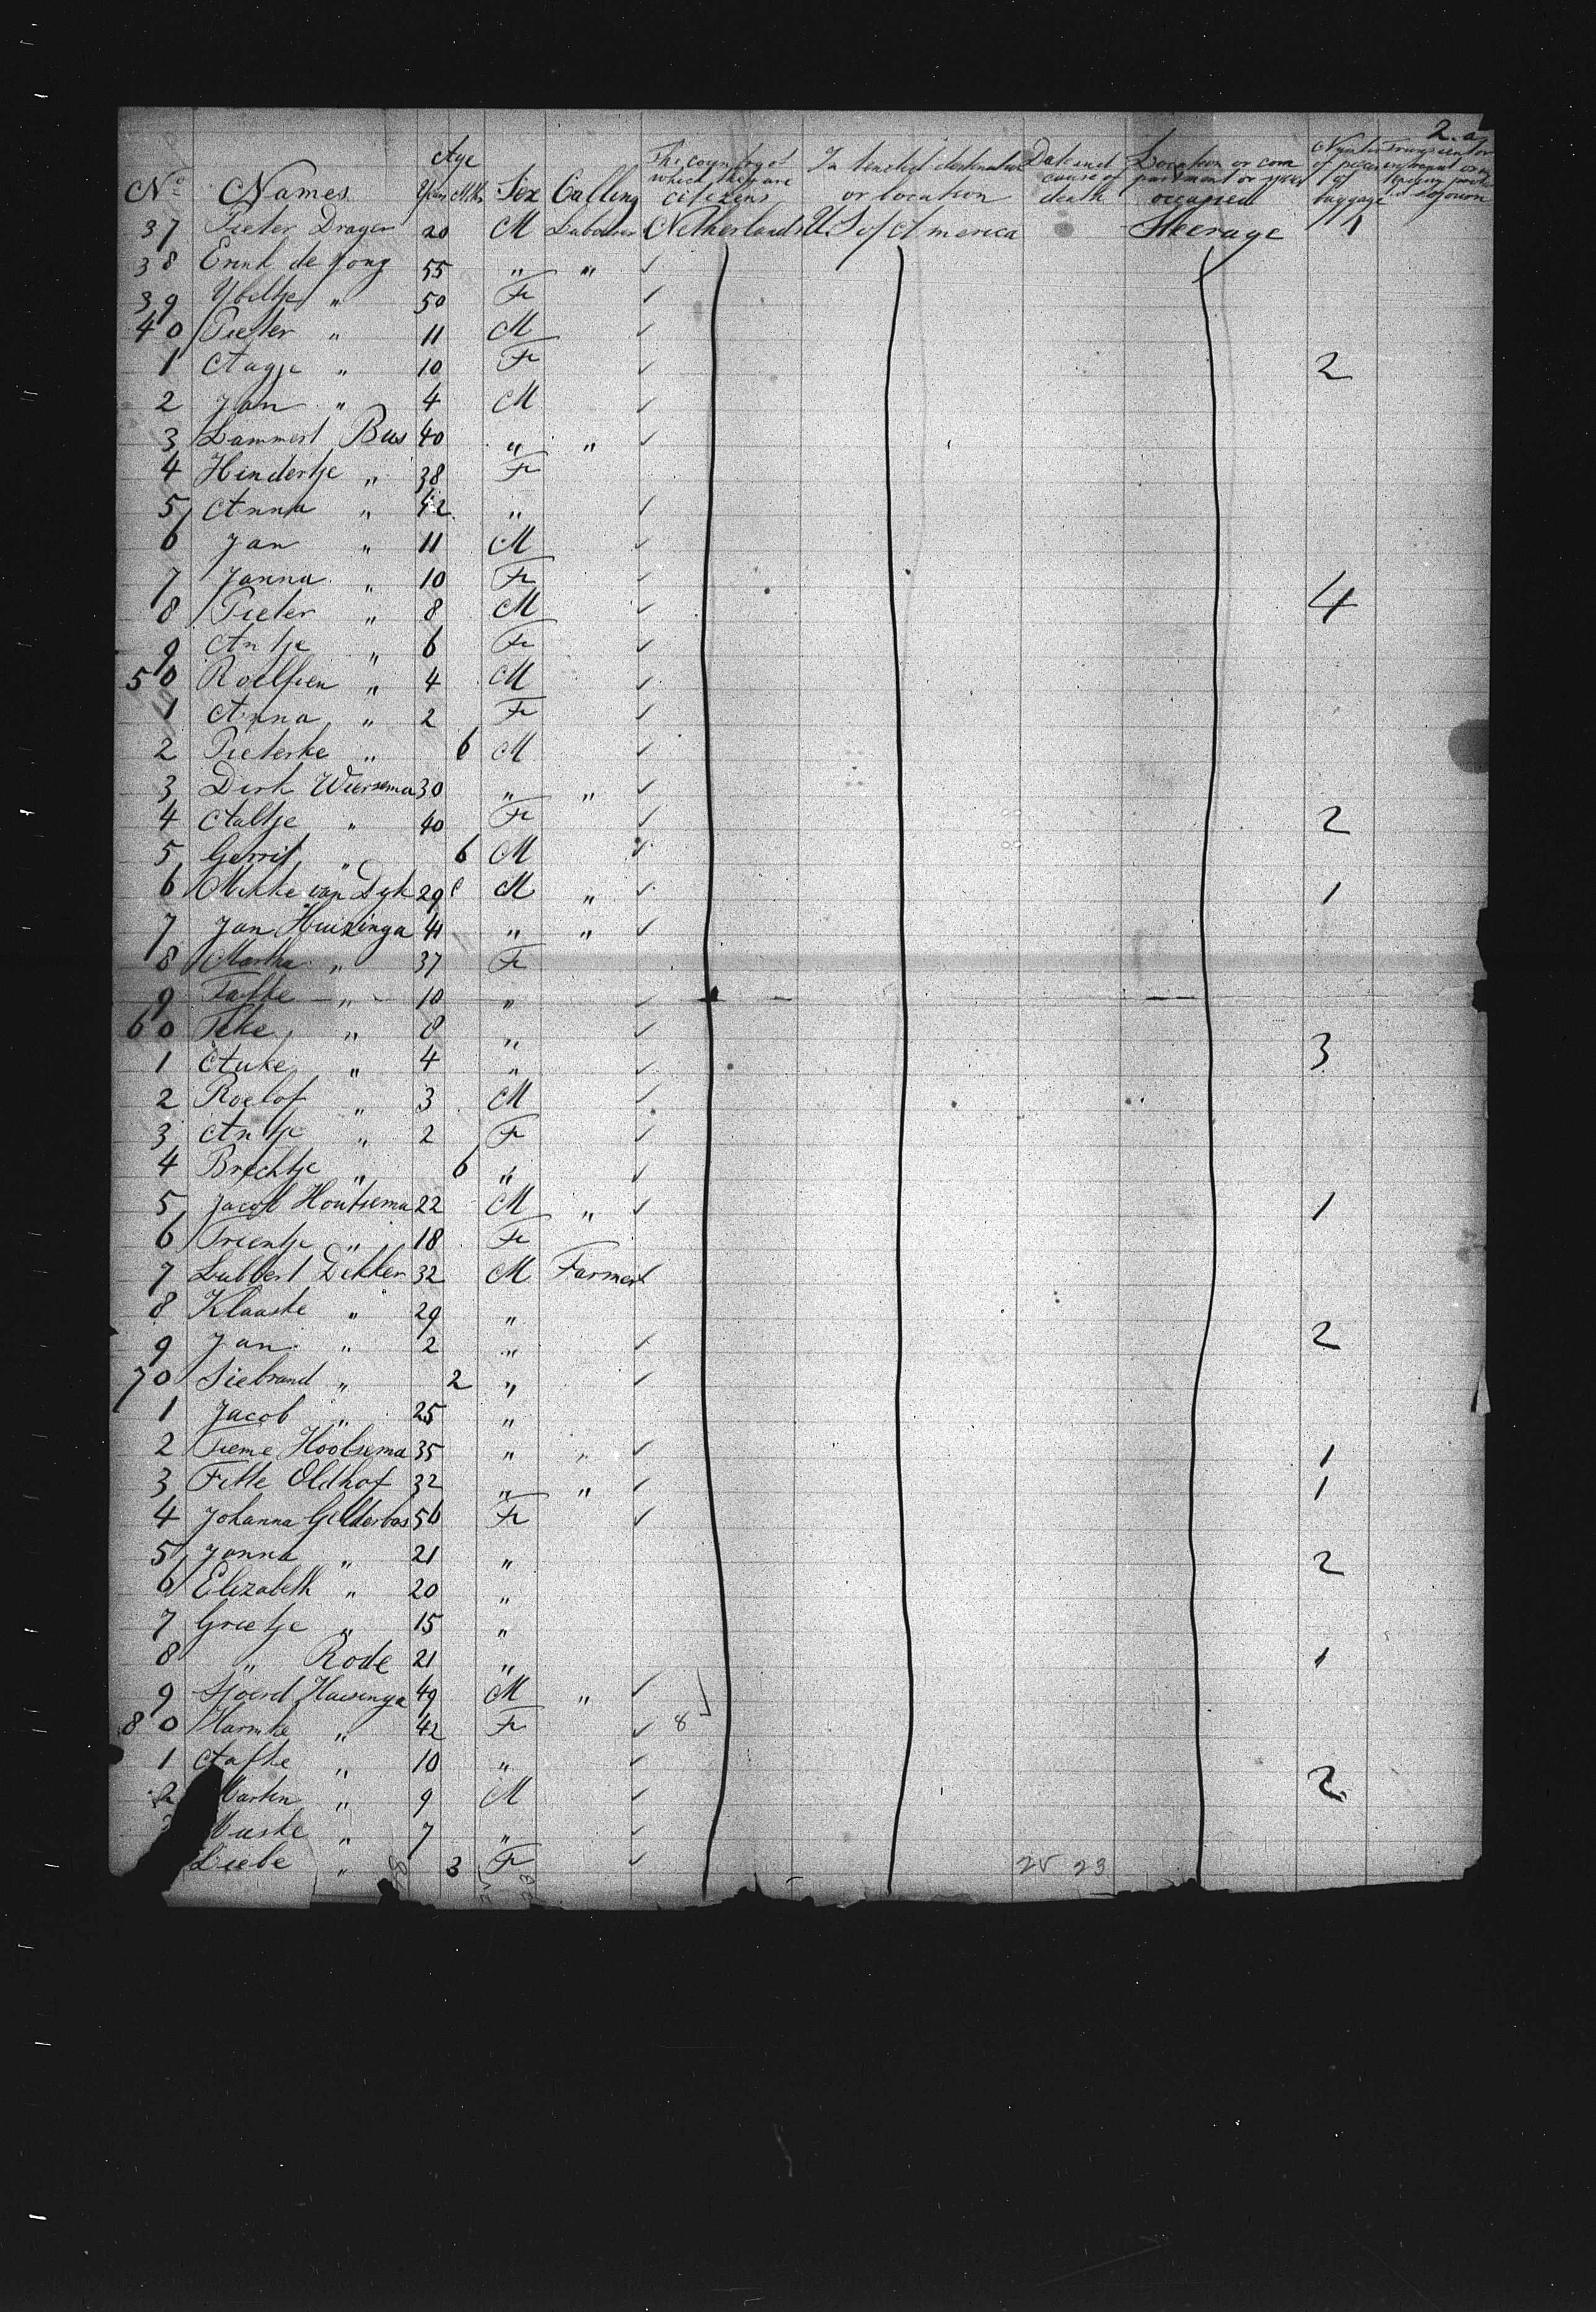 2.a
No Names Age Years Mths Sex Calling The country of which they are citizens Intended destination or location Date and cause of death Location or compartment or space occupied Number of pieces of baggage
37 Pieter Drager 20 M Labourer Netherlands U.S. of America Steerage 1
38 Erenk de Jong 55 " "
39 Ybeltje " 50 Fe
40 Pieter " 11 M
1 Aagje " 10 Fe 2
2 Jan " 4 M
3 Lammert Bus 40 " "
4 Hindertje " 38 Fe
5 Anna " 42 "
6 Jan " 11 M
7 Janna " 10 Fe
8 Pieter " 8 M 4
9 Antje " 6 Fe
50 Roelfien " 4 M
1 Anna " 2 Fe
2 Pieterke " 6 M
3 Dirk Wiersema 30 " "
4 Aaltje " 40 Fe 2
5 Gerrit " 6 M
6 van Dyk 29 M " 1
7 Jan Huizinga 41 " "
8 Martha " 37 Fe
9 " 10 "
60 " 8 "
1 Auke " 4 " 3
2 Roelof " 3 M
3 Antje " 2 Fe
4 Brechtje " 6 "
5 Jacob Houtsema 22 M " 1
6 Trientje " 18 Fe
7 Lubbert Dekker 32 M Farmer
8 Klaaske " 29 "
9 Jan " 2 " 2
70 Siebrand " 2 "
1 Jacob " 25 "
2 Tieme Hoolsema 35 " " 1
3 Fitte Oldhof 32 " " 1
4 Johanna Gelderbos 56 Fe
5 Janna " 21 " 2
6 Elizabeth " 20 "
7 Grietje " 15 "
8 " Rode 21 " 1
9 Sjoerd Huizenga 49 M "
80 Harmke " 42 Fe 8
1 Aafke " 10 "
2 Marten " 9 M 2
" 7 "
Liebe " 3 Fe 25 23